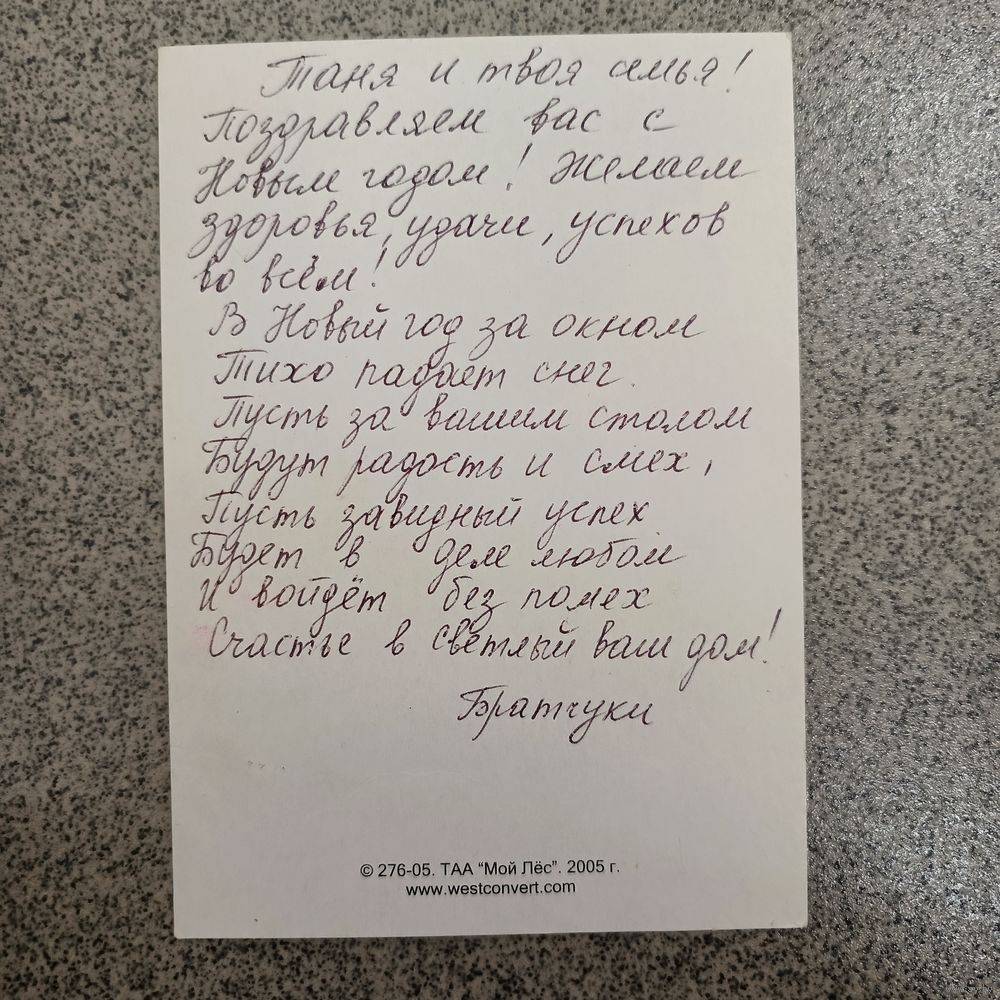 Таня и твоя семья!
Поздравляем вас с
Новым годом! Желаем
здоровья, удачи, успехов
во всём!
В Новый год за окном
Тихо падает снег.
Пусть за вашим столом
Будут радость и смех,
Пусть завидный успех
Будет в деле любом
И войдёт без помех
Счастье в светлый ваш дом!
Братчуки
© 276-05. ТАА “Мой Лёс”. 2005 г.
www.westconvert.com